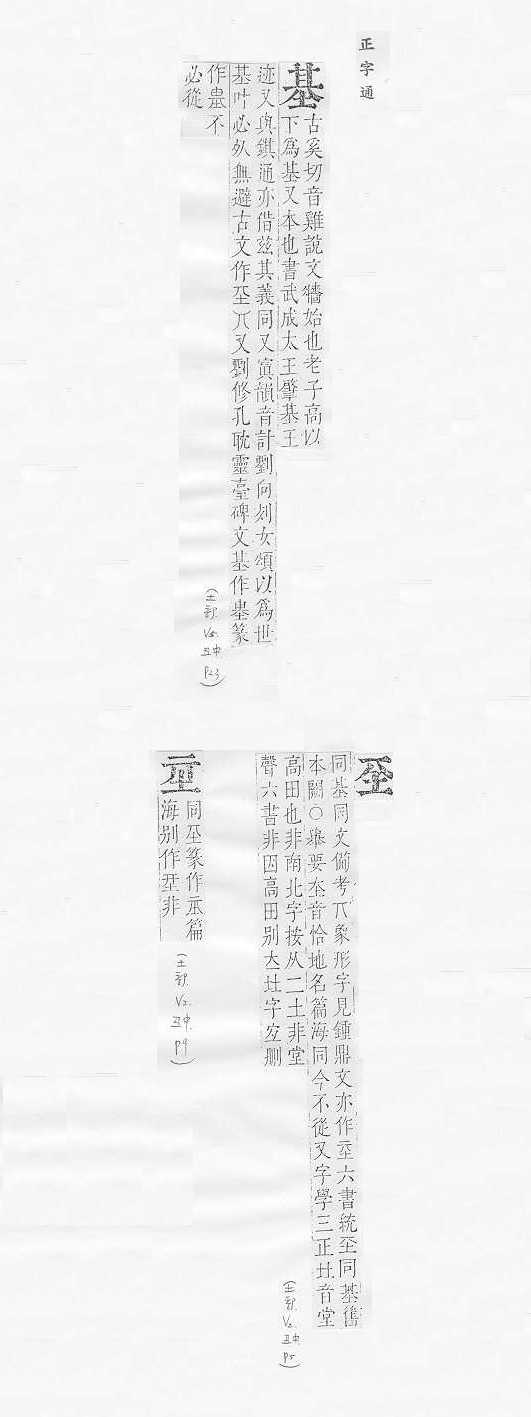 正字通
基
古奚切音雞說文牆始也老子高以
下爲基又本也書武成太王肇基王
迹又與錤通亦借玆其義同又寘韻音計劉向列女頌以爲世
基叶必外無避古文作坖丌又劉修孔耽靈臺碑文基作
篆
作 不
必從
坖
同基同文備考丌象形字見鍾鼎文亦作 六書統坖同基舊
本闕○舉要 音恰地名篇海同今不從又字學三正 音堂
高田也非南北字按从二土非堂
聲六書非因高田別 字宐刪
同坖篆作 篇
海別作 非
(土部 V2. 丑中 P23)
(土部 V2. 丑中 P5)
(土部 V2. 丑中 P9)